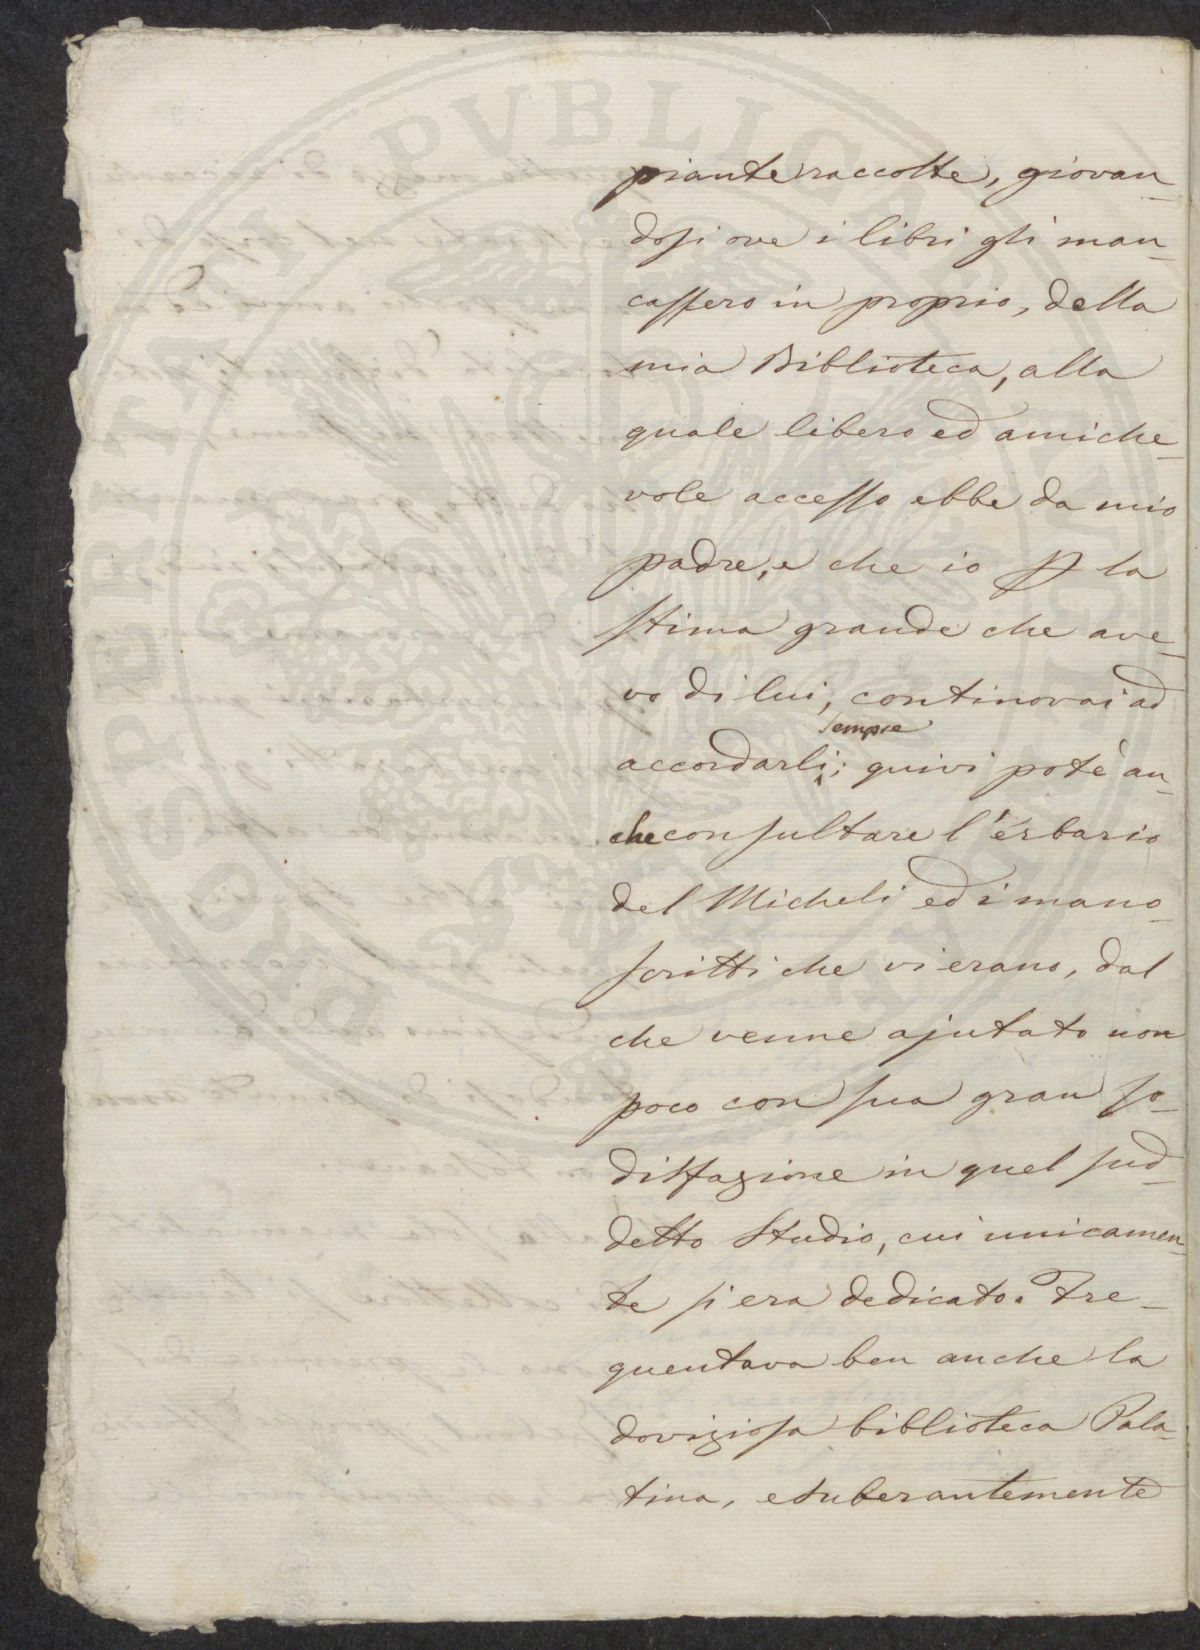 piante raccolte, giovan_
dosi ove i libri gli man_
cassero in proprio, della
mia Biblioteca, alla
quale libero ed amiche_
vole accesso ebbe da mio
padre, e che io p la
stima grande che ave_
vo di lui, continovai ad
sempre
accordarli; quivi potè an_
che consultare l'erbario
del Micheli ed i mano_
scritti che vi erano, dal
che venne ajutato non
poco con sua gran so_
disfazione in quel sud_
detto Studio, cui unicamen_
te si era dedicato. Fre_
quentava ben anche la
doviziosa biblioteca Pala_
tina, esuberantemente